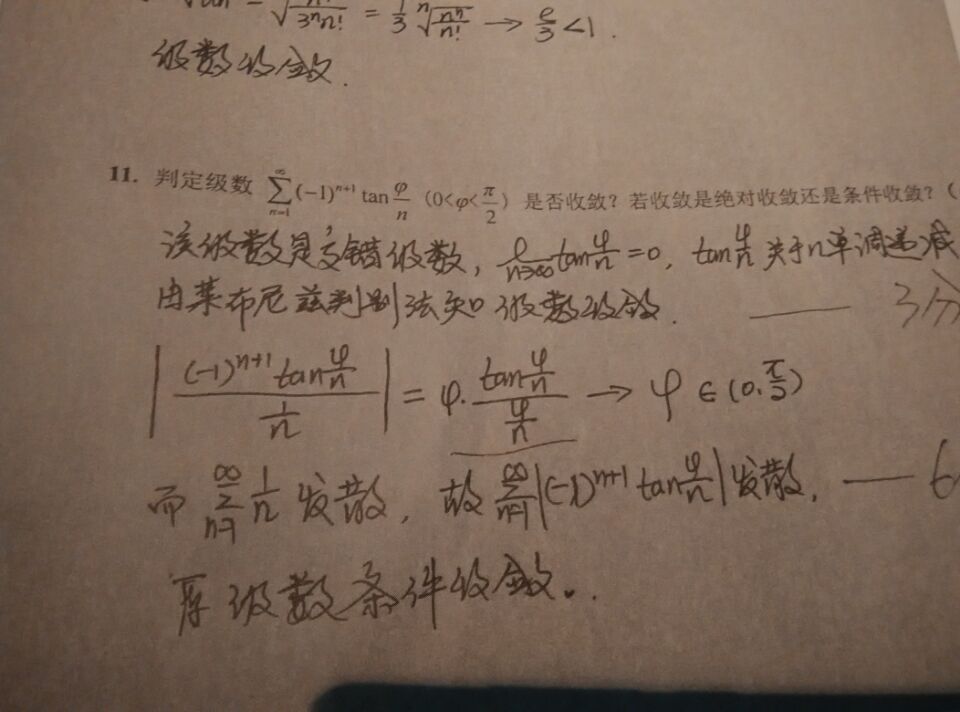 = \sqrt[n]{\frac{n^n}{3^n n!}} = \frac{1}{3} \sqrt[n]{\frac{n^n}{n!}} → \frac{e}{3} < 1.
级数收敛.
11. 判定级数 \sum_{n=1}^{\infty} (-1)^{n+1} \tan\frac{φ}{n} (0<φ<\frac{π}{2}) 是否收敛?若收敛是绝对收敛还是条件收敛?(
该级数是交错级数, \lim_{n→∞} \tan\frac{φ}{n} = 0, \tan\frac{φ}{n} 关于n单调递减
由莱布尼兹判别法知 级数收敛. —— 3分
\left| \frac{(-1)^{n+1} \tan\frac{φ}{n}}{\frac{1}{n}} \right| = φ · \frac{\tan\frac{φ}{n}}{\frac{φ}{n}} → φ ∈ (0, \frac{π}{2})
而 \sum_{n=1}^{\infty} \frac{1}{n} 发散, 故 \sum_{n=1}^{\infty} |(-1)^{n+1} \tan\frac{φ}{n}| 发散. —— 6
原级数条件收敛.